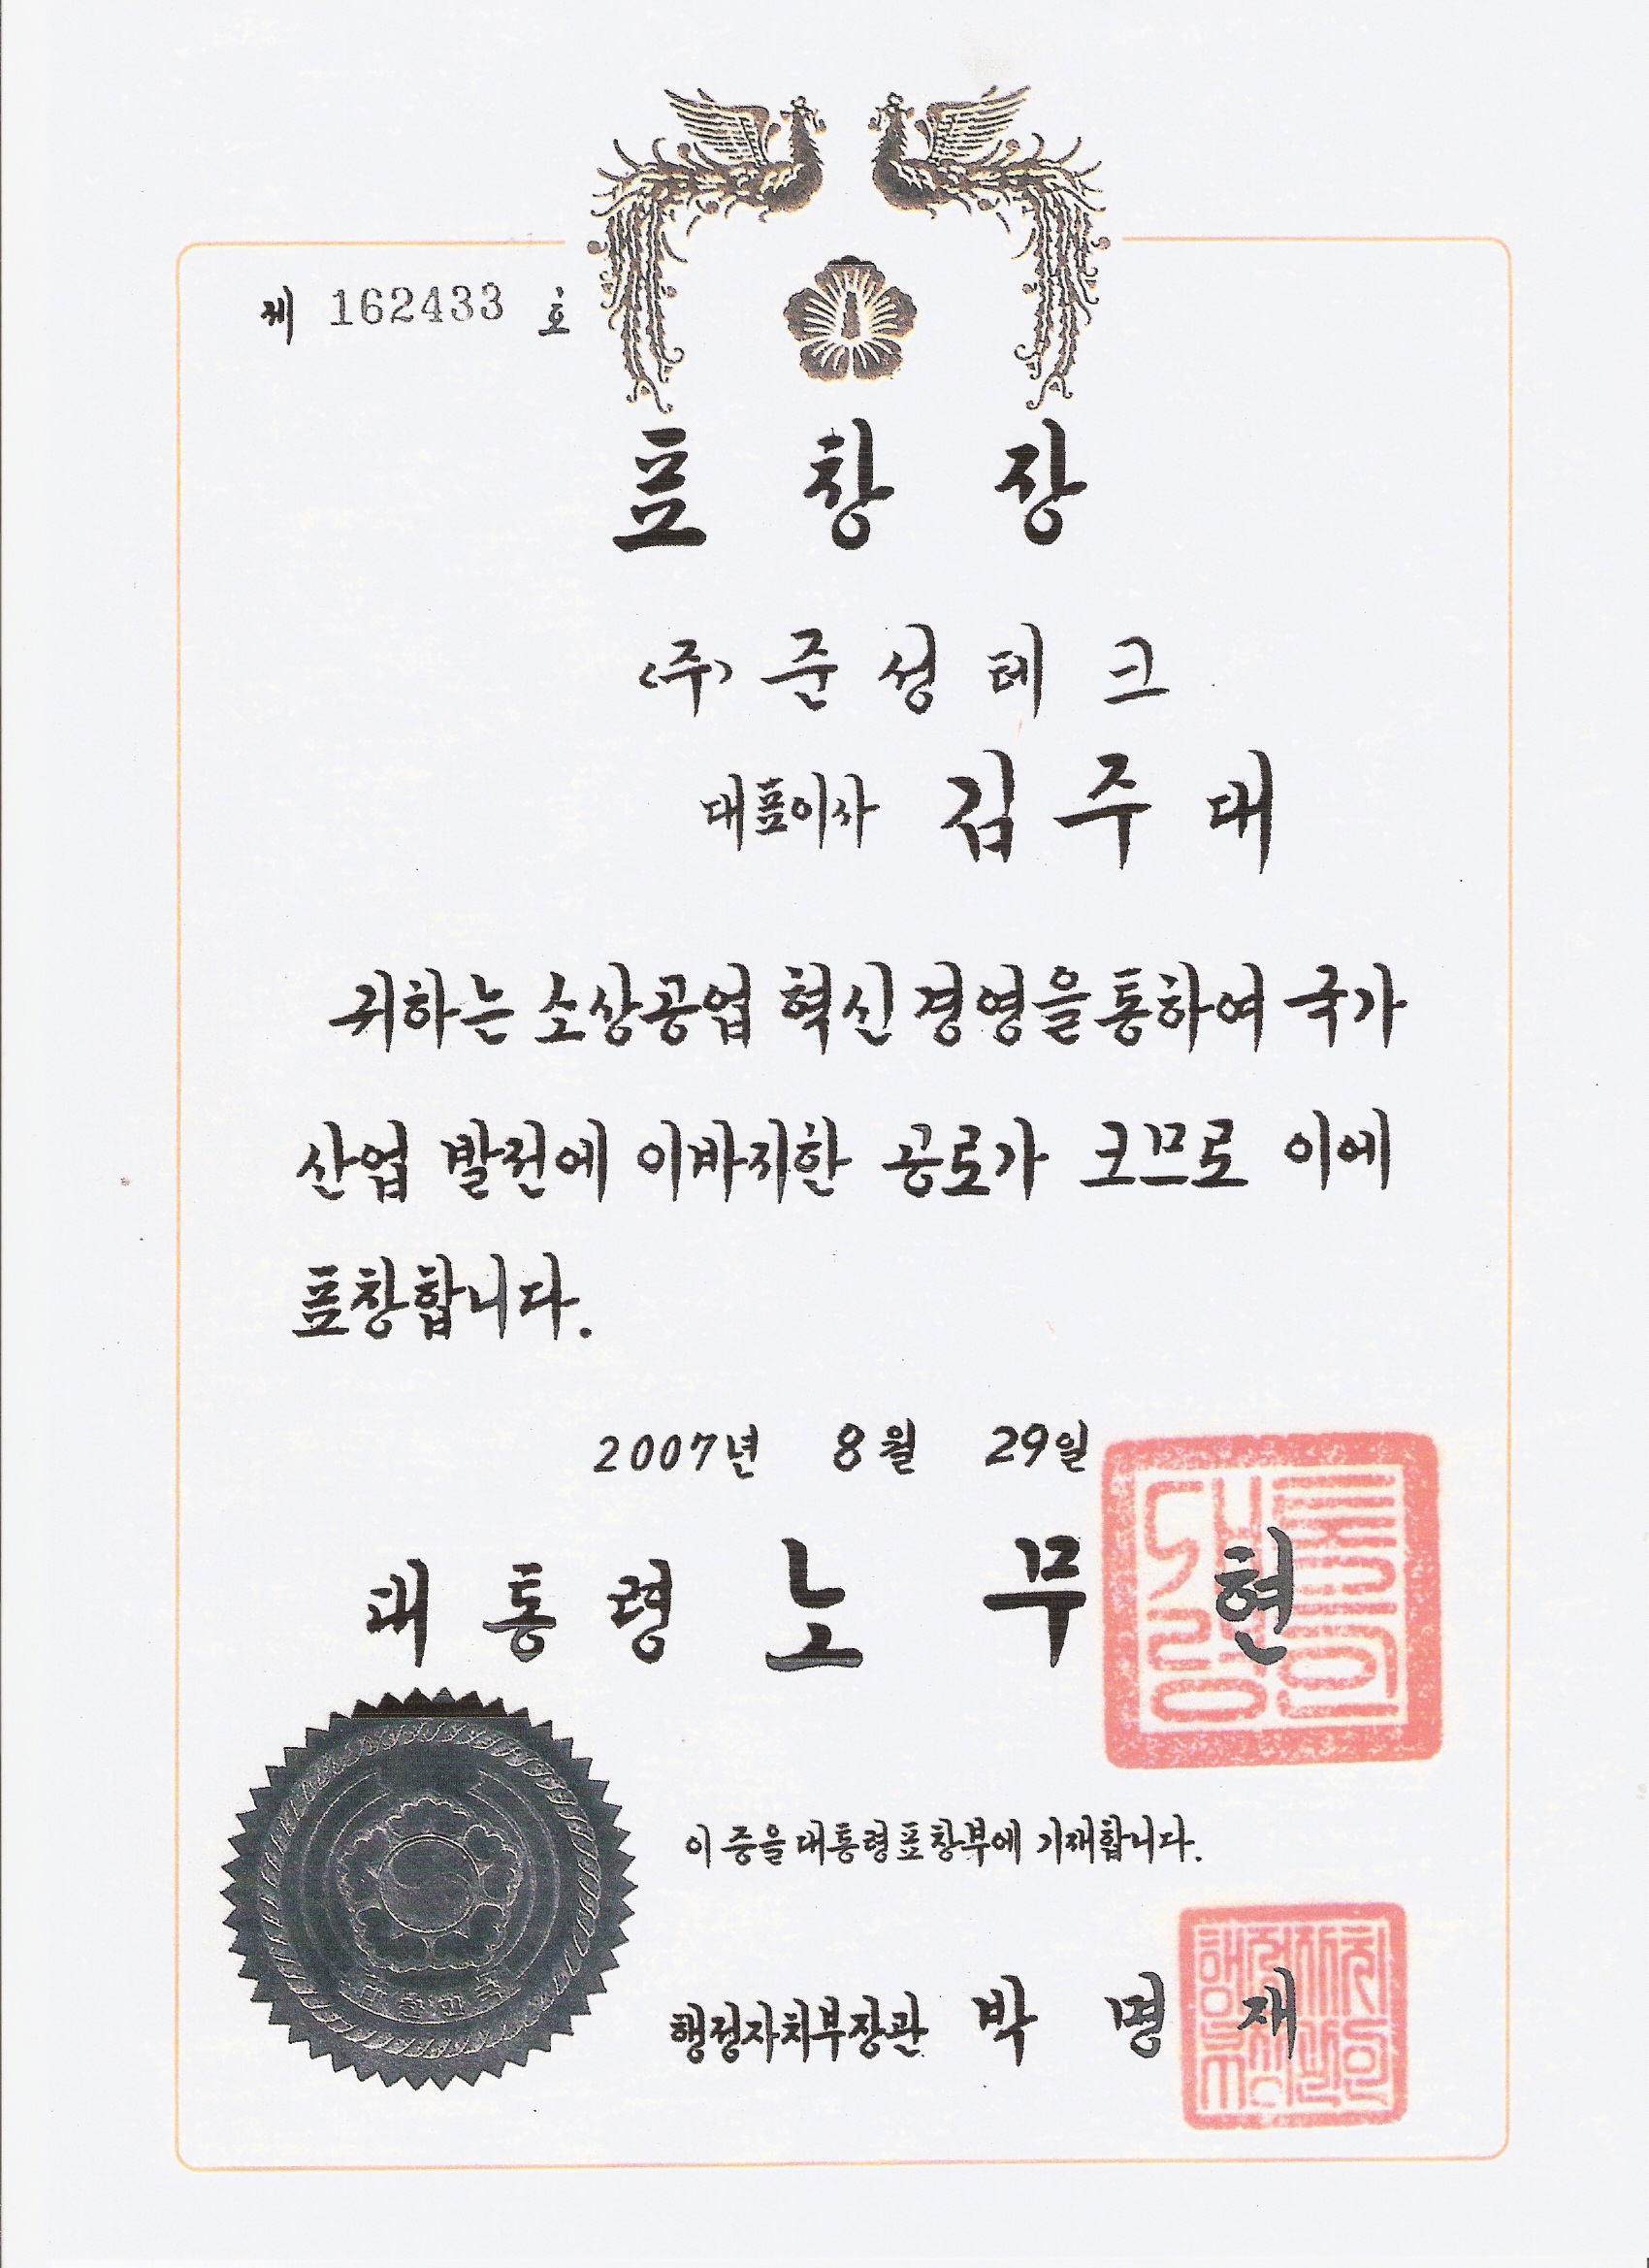 제 162433 호
표 창 장
(주) 준 성 테 크
대표이사 김 주 대
귀하는 소상공업 혁신 경영을 통하여 국가
산업 발전에 이바지한 공로가 크므로 이에
표창합니다.
2007년 8월 29일
대 통 령 노 무 현
이 증을 대통령표창부에 기재합니다.
행정자치부장관 박 명 재
대한민국